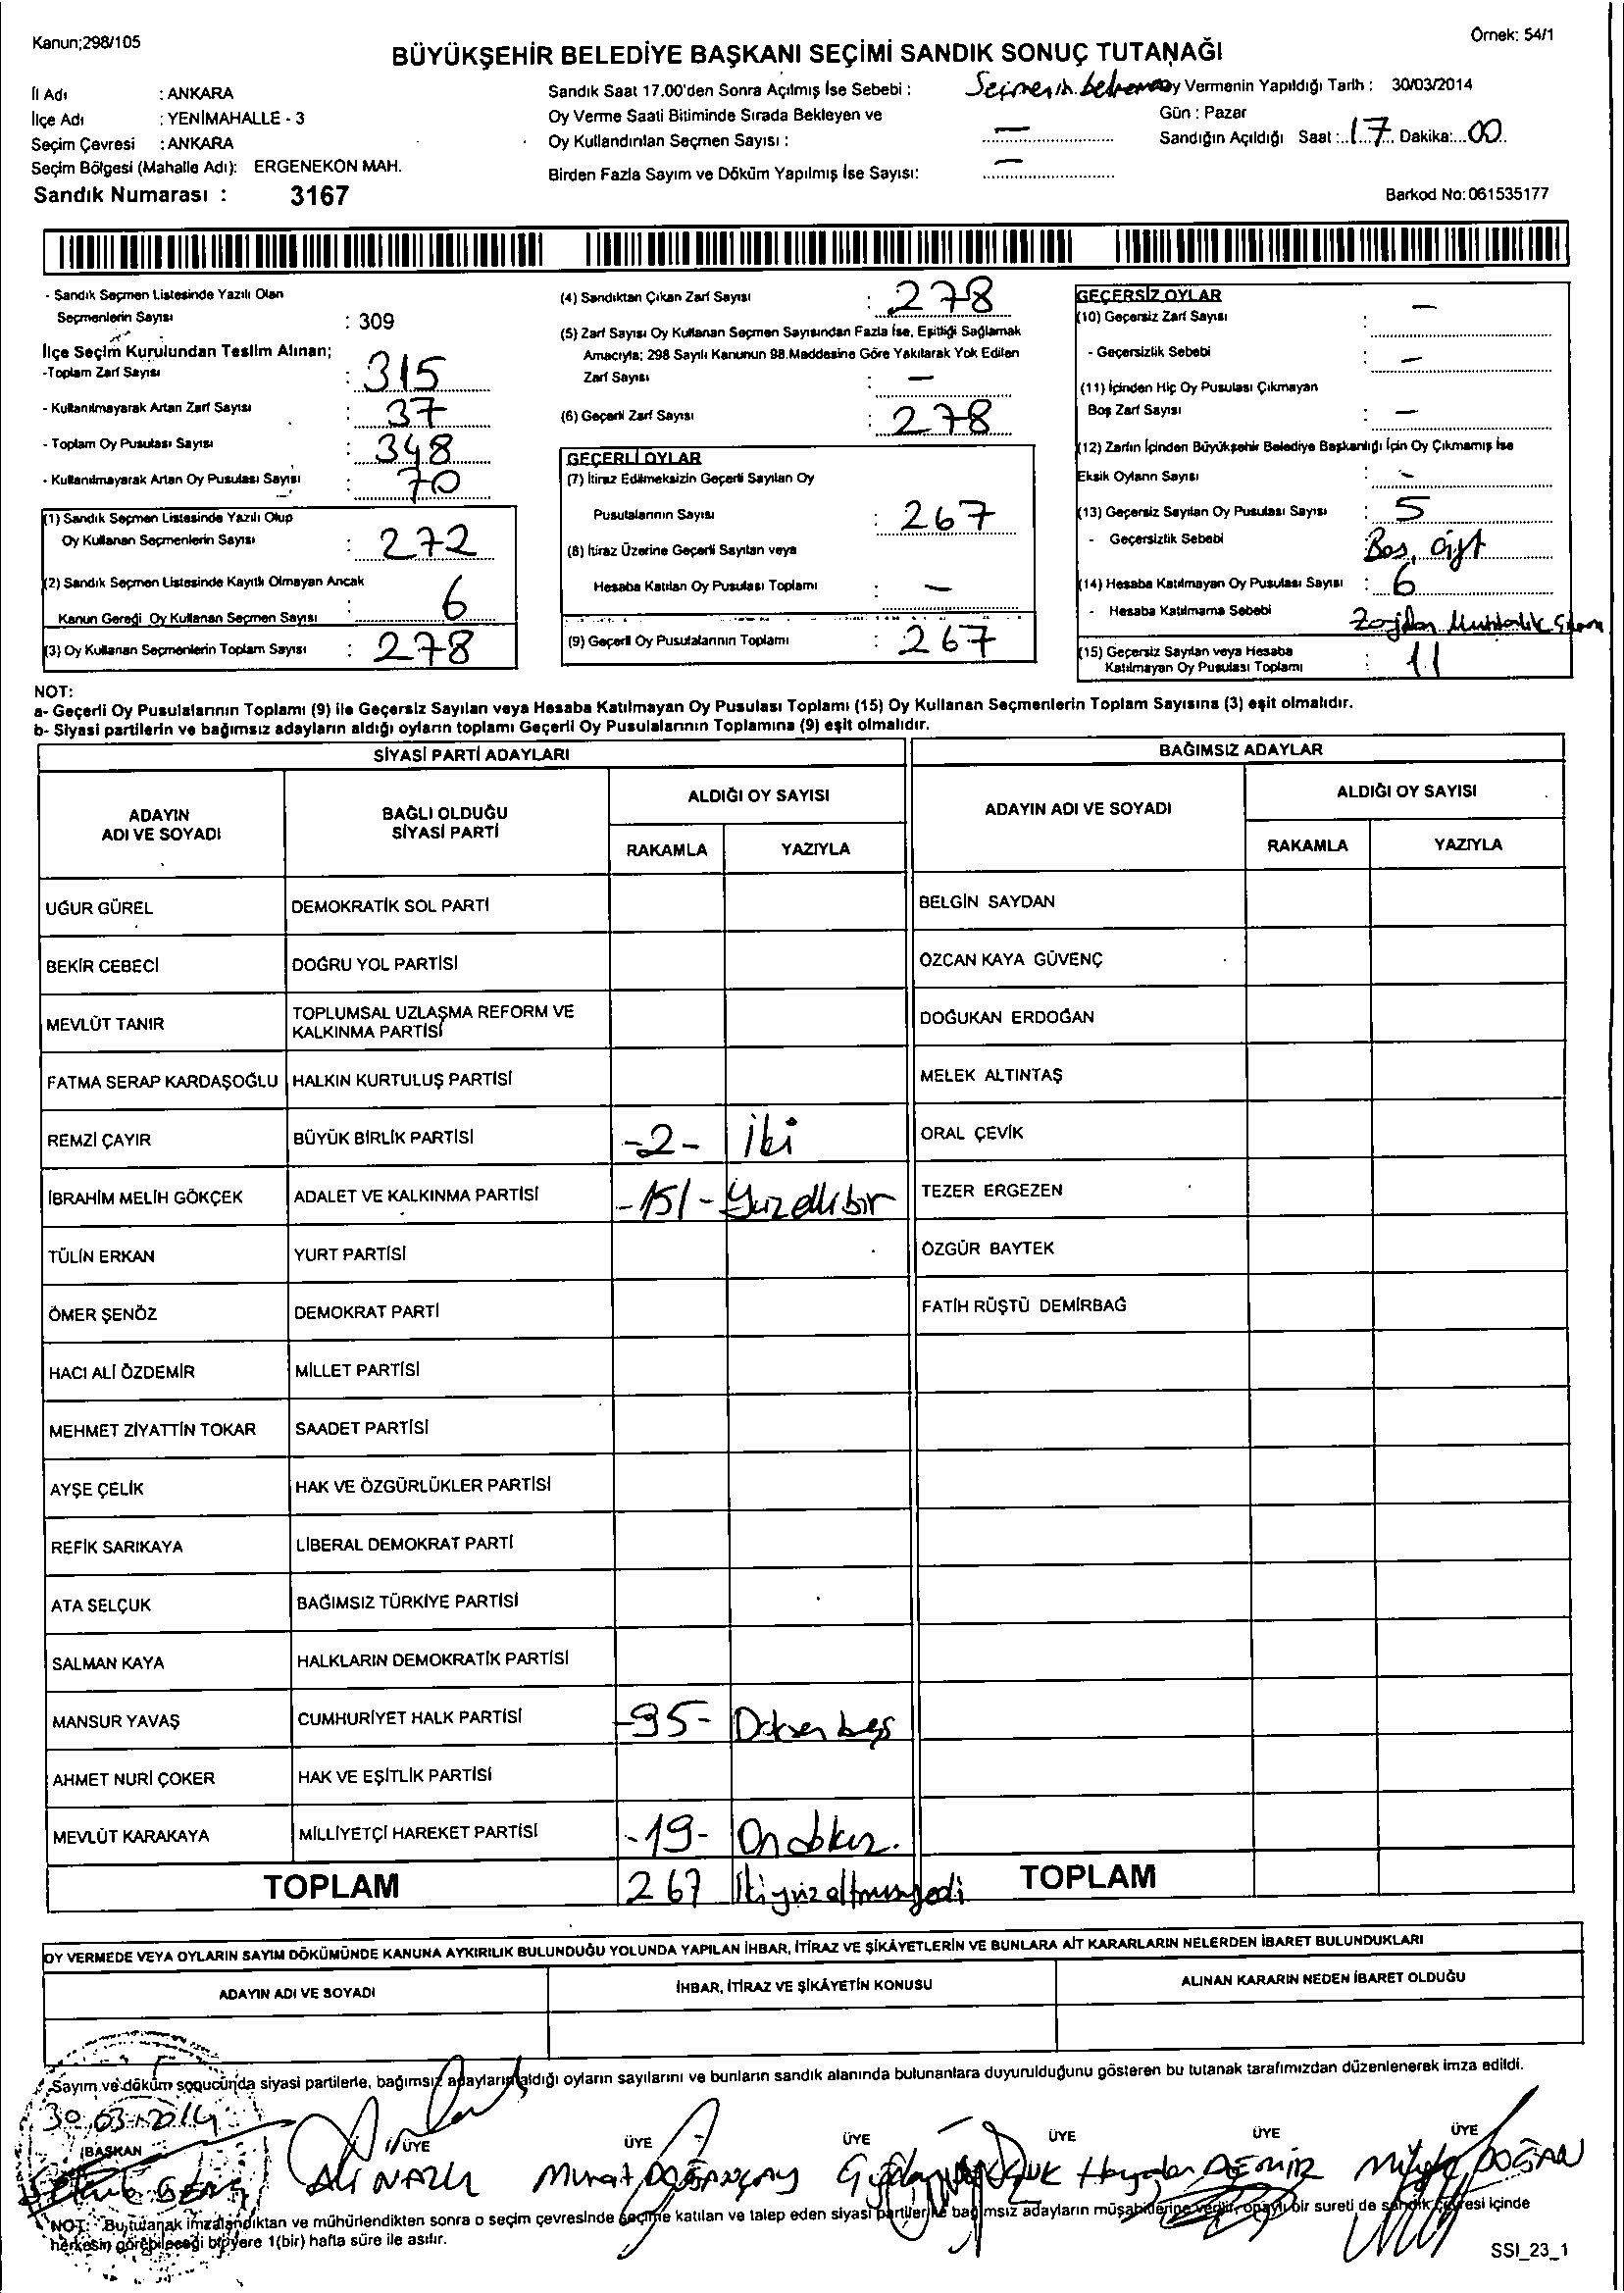 Kanun;298/105
Örnek: 54/1
BÜYÜKŞEHİR BELEDİYE BAŞKANI SEÇİMİ SANDIK SONUÇ TUTANAĞI
İl Adı : ANKARA
İlçe Adı : YENİMAHALLE - 3
Seçim Çevresi : ANKARA
Seçim Bölgesi (Mahalle Adı): ERGENEKON MAH.
Sandık Numarası : 3167
Sandık Saat 17.00'den Sonra Açılmış İse Sebebi :
Oy Verme Saati Bitiminde Sırada Bekleyen ve
Oy Kullandırılan Seçmen Sayısı : –
Birden Fazla Sayım ve Döküm Yapılmış İse Sayısı: –
Oy Vermenin Yapıldığı Tarih : 30/03/2014
Gün : Pazar
Sandığın Açıldığı Saat :..17.. Dakika:...00..
Barkod No: 061535177
- Sandık Seçmen Listesinde Yazılı Olan
Seçmenlerin Sayısı : 309
İlçe Seçim Kurulundan Teslim Alınan;
-Toplam Zarf Sayısı : 315
- Kullanılmayarak Artan Zarf Sayısı : 37
- Toplam Oy Pusulası Sayısı : 348
- Kullanılmayarak Artan Oy Pusulası Sayısı : 70
(1) Sandık Seçmen Listesinde Yazılı Olup
Oy Kullanan Seçmenlerin Sayısı : 272
(2) Sandık Seçmen Listesinde Kayıtlı Olmayan Ancak
Kanun Gereği Oy Kullanan Seçmen Sayısı : 6
(3) Oy Kullanan Seçmenlerin Toplam Sayısı : 278
(4) Sandıktan Çıkan Zarf Sayısı : 278
(5) Zarf Sayısı Oy Kullanan Seçmen Sayısından Fazla İse, Eşitliği Sağlamak
Amacıyla; 298 Sayılı Kanunun 98.Maddesine Göre Yakılarak Yok Edilen
Zarf Sayısı : –
(6) Geçerli Zarf Sayısı : 278
GEÇERLİ OYLAR
(7) İtiraz Edilmeksizin Geçerli Sayılan Oy
Pusulalarının Sayısı : 267
(8) İtiraz Üzerine Geçerli Sayılan veya
Hesaba Katılan Oy Pusulası Toplamı : –
(9) Geçerli Oy Pusulalarının Toplamı : 267
GEÇERSİZ OYLAR
(10) Geçersiz Zarf Sayısı : –
- Geçersizlik Sebebi : –
(11) İçinden Hiç Oy Pusulası Çıkmayan
Boş Zarf Sayısı : –
(12) Zarfın İçinden Büyükşehir Belediye Başkanlığı İçin Oy Çıkmamış İse
Eksik Oyların Sayısı : –
(13) Geçersiz Sayılan Oy Pusulası Sayısı : 5
- Geçersizlik Sebebi Boş, çift
(14) Hesaba Katılmayan Oy Pusulası Sayısı : 6
- Hesaba Katılmama Sebebi Zarfdan Muhtarlık
(15) Geçersiz Sayılan veya Hesaba
Katılmayan Oy Pusulası Toplamı : 11
NOT:
a- Geçerli Oy Pusulalarının Toplamı (9) ile Geçersiz Sayılan veya Hesaba Katılmayan Oy Pusulası Toplamı (15) Oy Kullanan Seçmenlerin Toplam Sayısına (3) eşit olmalıdır.
b- Siyasi partilerin ve bağımsız adayların aldığı oyların toplamı Geçerli Oy Pusulalarının Toplamına (9) eşit olmalıdır.
SİYASİ PARTİ ADAYLARI
BAĞIMSIZ ADAYLAR
ADAYIN
ADI VE SOYADI
BAĞLI OLDUĞU
SİYASİ PARTİ
ALDIĞI OY SAYISI
RAKAMLA YAZIYLA
ADAYIN ADI VE SOYADI
ALDIĞI OY SAYISI
RAKAMLA YAZIYLA
UĞUR GÜREL DEMOKRATİK SOL PARTİ BELGİN SAYDAN
BEKİR CEBECİ DOĞRU YOL PARTİSİ ÖZCAN KAYA GÜVENÇ
MEVLÜT TANIR TOPLUMSAL UZLAŞMA REFORM VE
KALKINMA PARTİSİ DOĞUKAN ERDOĞAN
FATMA SERAP KARDAŞOĞLU HALKIN KURTULUŞ PARTİSİ MELEK ALTINTAŞ
REMZİ ÇAYIR BÜYÜK BİRLİK PARTİSİ -2- iki ORAL ÇEVİK
İBRAHİM MELİH GÖKÇEK ADALET VE KALKINMA PARTİSİ -151- Yüzellibir TEZER ERGEZEN
TÜLİN ERKAN YURT PARTİSİ ÖZGÜR BAYTEK
ÖMER ŞENÖZ DEMOKRAT PARTİ FATİH RÜŞTÜ DEMİRBAĞ
HACI ALİ ÖZDEMİR MİLLET PARTİSİ
MEHMET ZİYATTİN TOKAR SAADET PARTİSİ
AYŞE ÇELİK HAK VE ÖZGÜRLÜKLER PARTİSİ
REFİK SARIKAYA LİBERAL DEMOKRAT PARTİ
ATA SELÇUK BAĞIMSIZ TÜRKİYE PARTİSİ
SALMAN KAYA HALKLARIN DEMOKRATİK PARTİSİ
MANSUR YAVAŞ CUMHURİYET HALK PARTİSİ -95- Doksan beş
AHMET NURİ ÇOKER HAK VE EŞİTLİK PARTİSİ
MEVLÜT KARAKAYA MİLLİYETÇİ HAREKET PARTİSİ -19- On dokuz.
TOPLAM 267 İkiyüzaltmışyedi TOPLAM
OY VERMEDE VEYA OYLARIN SAYIM DÖKÜMÜNDE KANUNA AYKIRILIK BULUNDUĞU YOLUNDA YAPILAN İHBAR, İTİRAZ VE ŞİKÂYETLERİN VE BUNLARA AİT KARARLARIN NELERDEN İBARET BULUNDUKLARI
ADAYIN ADI VE SOYADI İHBAR, İTİRAZ VE ŞİKÂYETİN KONUSU ALINAN KARARIN NEDEN İBARET OLDUĞU
Sayım ve döküm sonucunda siyasi partilerle, bağımsız adayların aldığı oyların sayılarını ve bunların sandık alanında bulunanlara duyurulduğunu gösteren bu tutanak tarafımızdan düzenlenerek imza edildi.
30.03.2014
BAŞKAN ÜYE ÜYE ÜYE ÜYE ÜYE ÜYE
ALİ NAZLI Murat DOĞANÇAY DEMİR DOĞAN
NOT: Bu tutanak imzalandıktan ve mühürlendikten sonra o seçim çevresinde seçime katılan ve talep eden siyasi partiler ile bağımsız adayların müşahidlerine verilir, onaylı bir sureti de sandık çevresi içinde
herkesin görebileceği bir yere 1(bir) hafta süre ile asılır.
SSI_23_1